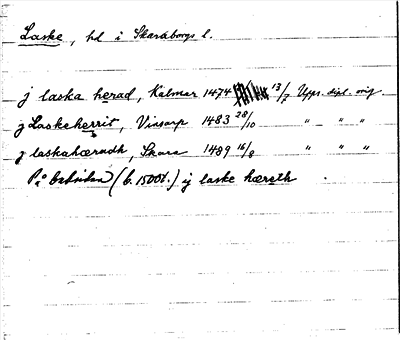 Laske, hd i Skaraborgs l.
j laska herad, Kalmar 1474 13/7 Upps. dipl. orig
j Laskeherrit, Vinsarp 1483 28/10 " " "
j laskahærædh, Skara 1489 16/8 " " "
På baksidan (b. 1500t.) ij laske hæreth